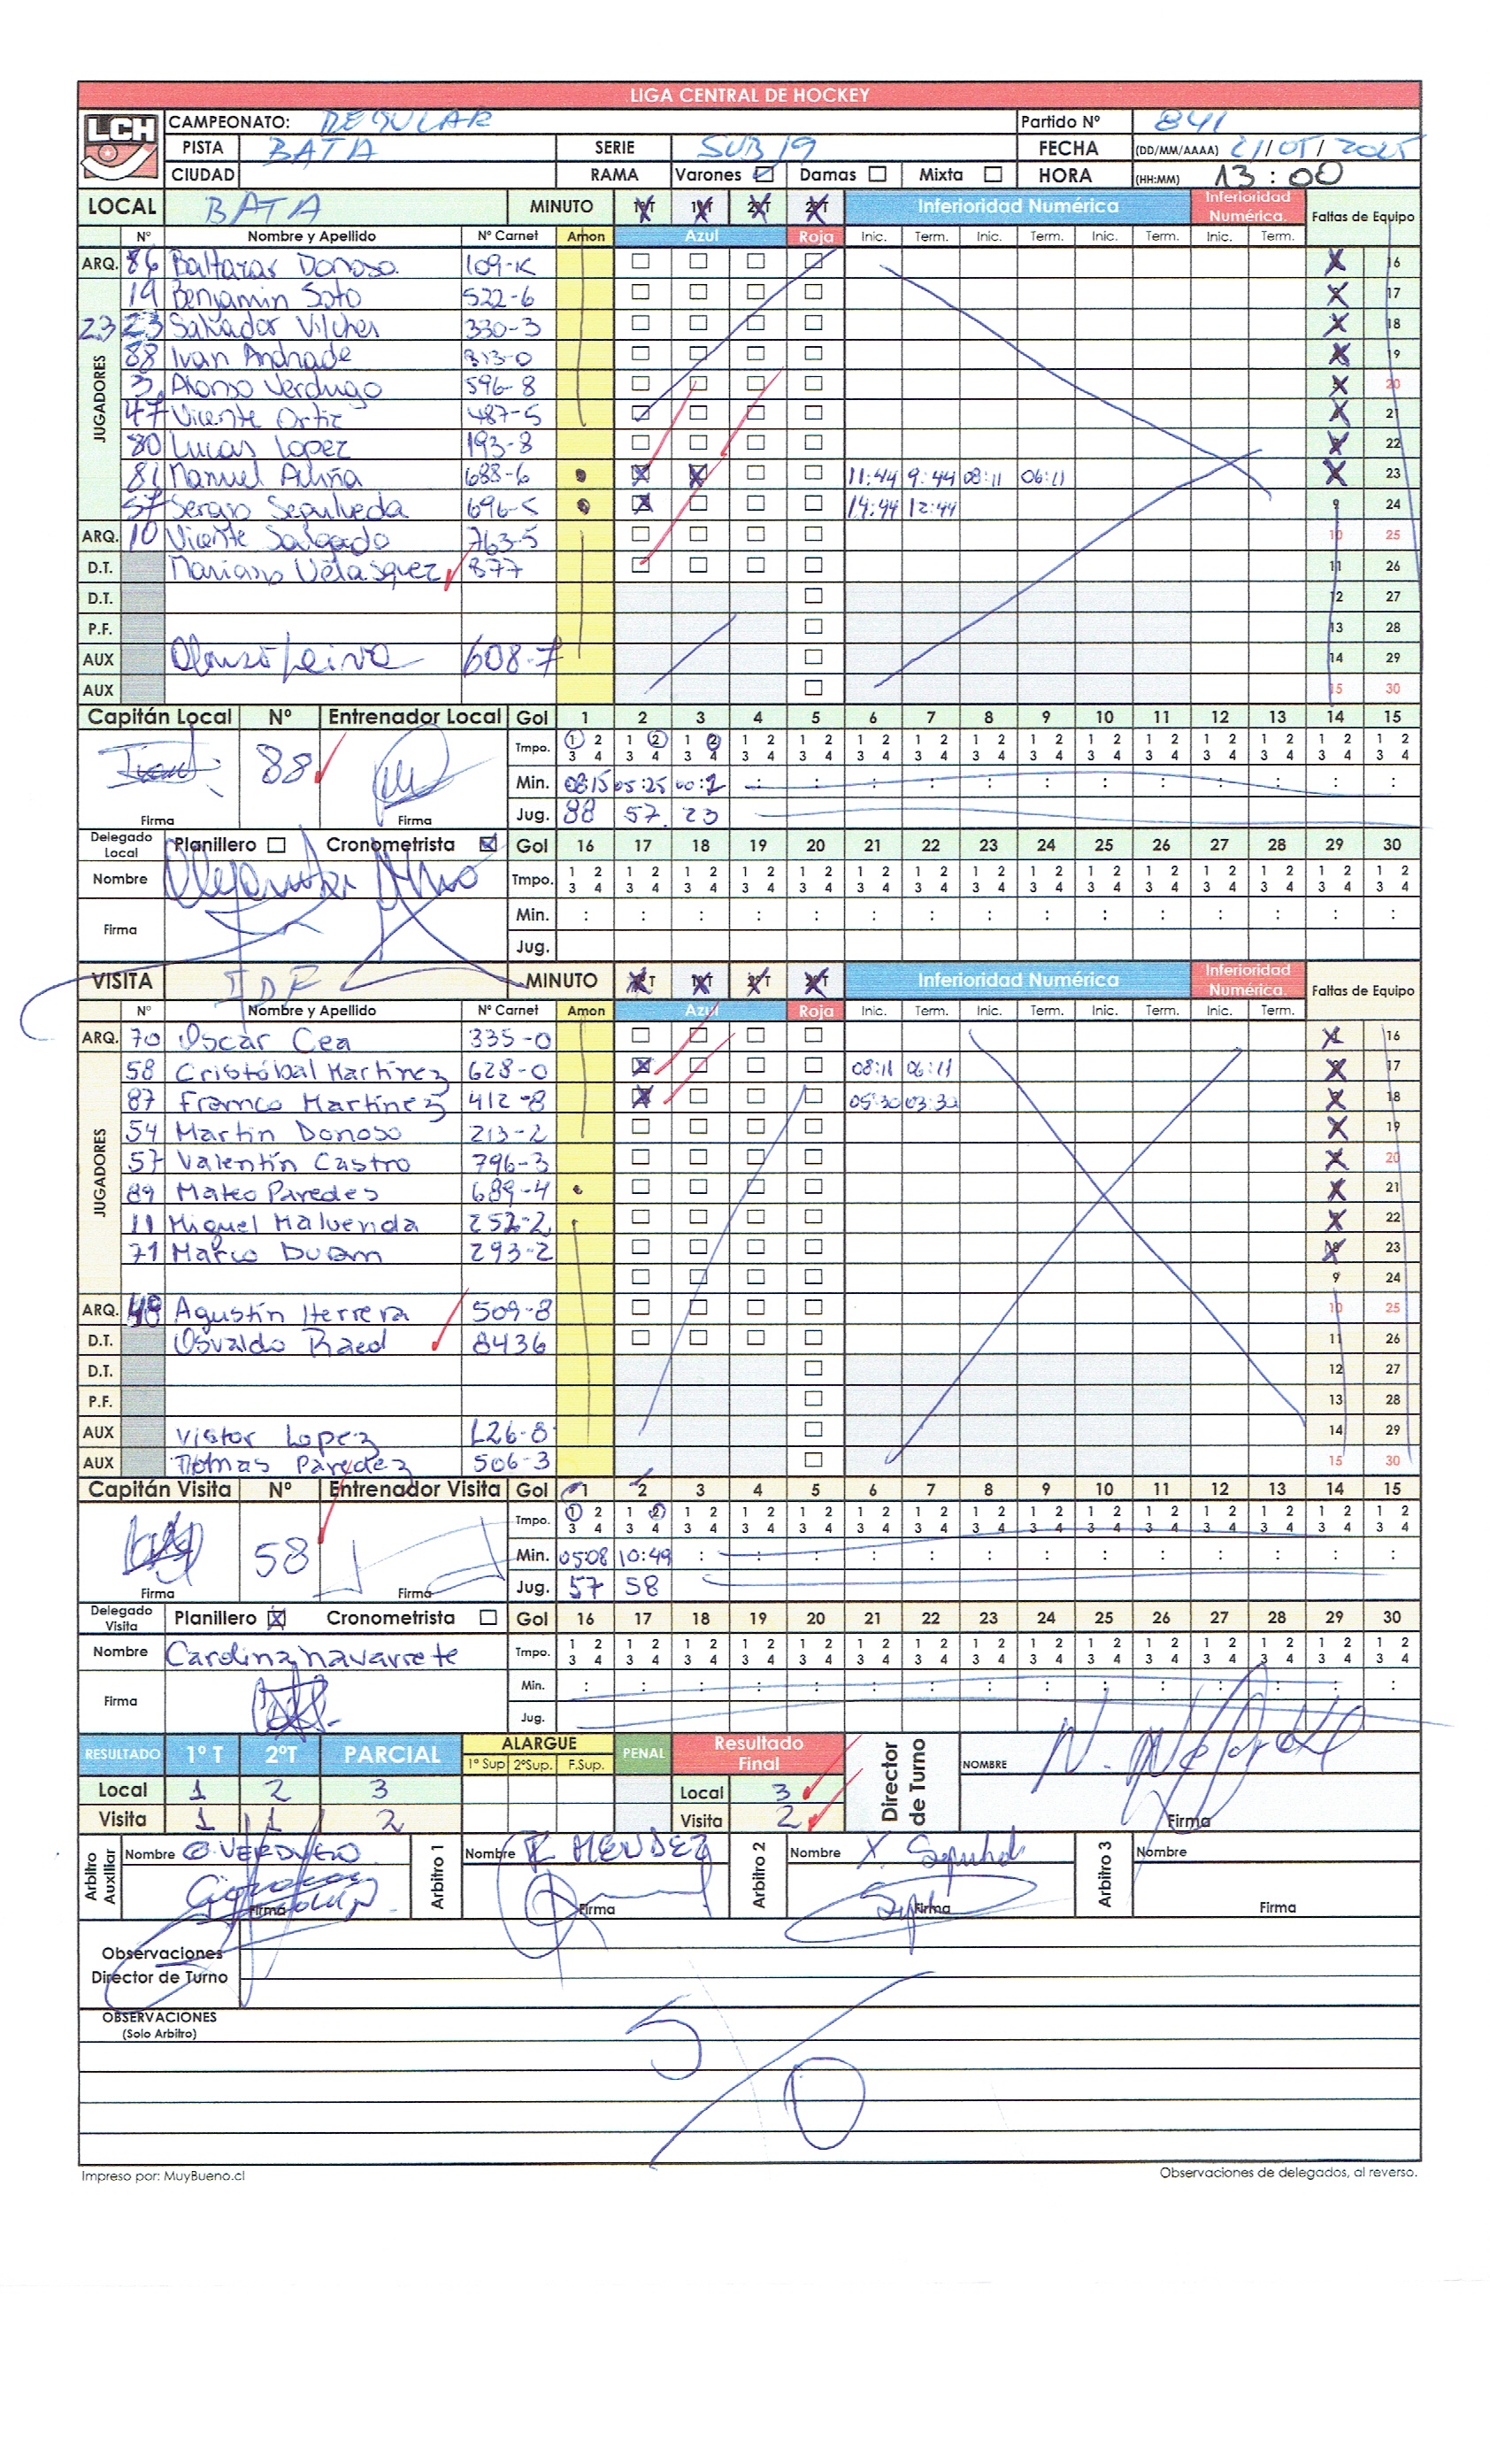 LIGA CENTRAL DE HOCKEY
LCH CAMPEONATO: REGULAR Partido Nº 841
PISTA BATA SERIE SUB 19 FECHA (DD/MM/AAAA) 21/05/2025
CIUDAD RAMA Varones Damas Mixta HORA (HH:MM) 13:00
LOCAL BATA MINUTO 1ºT 1ºT 2ºT 2ºT Inferioridad Numérica Inferioridad Numérica. Faltas de Equipo
Nº Nombre y Apellido Nº Carnet Amon Azul Roja Inic. Term. Inic. Term. Inic. Term. Inic. Term.
ARQ. 86 Baltazar Donoso 109-K 16
19 Benjamin Soto 522-6 17
23 23 Salvador Vilches 330-3 18
JUGADORES
88 Ivan Andrade 813-0 19
3 Alonso Verdugo 596-8 20
47 Vicente Ortiz 487-5 21
80 Lucas Lopez 193-8 22
81 Manuel 688-6 11:44 9:44 08:11 06:11 23
57 Sergio Sepulveda 696-5 14:44 12:44 9 24
ARQ. 10 Vicente Salgado 763-5 10 25
D.T. Mariano Velasquez 877 11 26
D.T. 12 27
P.F. 13 28
AUX Alonso Leiva 608-7 14 29
AUX 15 30
Capitán Local Nº Entrenador Local Gol 1 2 3 4 5 6 7 8 9 10 11 12 13 14 15
Tmpo. 1 2 1 2 1 2 1 2 1 2 1 2 1 2 1 2 1 2 1 2 1 2 1 2 1 2 1 2 1 2
3 4 3 4 3 4 3 4 3 4 3 4 3 4 3 4 3 4 3 4 3 4 3 4 3 4 3 4 3 4
88 Min. 08:15 05:25 : : : : : : : : : : : :
Firma Firma Jug. 88 57 23
Delegado Local Planillero Cronometrista Gol 16 17 18 19 20 21 22 23 24 25 26 27 28 29 30
Nombre Tmpo. 1 2 1 2 1 2 1 2 1 2 1 2 1 2 1 2 1 2 1 2 1 2 1 2 1 2 1 2 1 2
3 4 3 4 3 4 3 4 3 4 3 4 3 4 3 4 3 4 3 4 3 4 3 4 3 4 3 4 3 4
Firma Min. : : : : : : : : : : : : : : :
Jug.
VISITA IDF MINUTO 1ºT 1ºT 2ºT 2ºT Inferioridad Numérica Inferioridad Numérica. Faltas de Equipo
Nº Nombre y Apellido Nº Carnet Amon Azul Roja Inic. Term. Inic. Term. Inic. Term. Inic. Term.
ARQ. 70 Oscar Cea 335-0 16
58 Cristóbal Martínez 628-0 08:11 06:11 17
87 Franco Martínez 412-8 05:30 03:30 18
54 Martin Donoso 213-2 19
JUGADORES
57 Valentín Castro 796-3 20
89 Mateo Paredes 689-4 21
11 Miguel Malvenda 252-2 22
71 Marco Duran 293-2 23
9 24
ARQ. 48 Agustín Herrera 509-8 10 25
D.T. Osvaldo Raed 8436 11 26
D.T. 12 27
P.F. 13 28
AUX Victor Lopez 126-8 14 29
AUX Tomas Paredez 506-3 15 30
Capitán Visita Nº Entrenador Visita Gol 1 2 3 4 5 6 7 8 9 10 11 12 13 14 15
Tmpo. 1 2 1 2 1 2 1 2 1 2 1 2 1 2 1 2 1 2 1 2 1 2 1 2 1 2 1 2 1 2
3 4 3 4 3 4 3 4 3 4 3 4 3 4 3 4 3 4 3 4 3 4 3 4 3 4 3 4 3 4
58 Min. 05:08 10:49 : : : : : : : : : : : : :
Firma Firma Jug. 57 58
Delegado Visita Planillero Cronometrista Gol 16 17 18 19 20 21 22 23 24 25 26 27 28 29 30
Nombre Carolina navarrete Tmpo. 1 2 1 2 1 2 1 2 1 2 1 2 1 2 1 2 1 2 1 2 1 2 1 2 1 2 1 2 1 2
3 4 3 4 3 4 3 4 3 4 3 4 3 4 3 4 3 4 3 4 3 4 3 4 3 4 3 4 3 4
Firma Min. : : : : : : : : : : : : : : :
Jug.
RESULTADO 1º T 2ºT PARCIAL ALARGUE PENAL Resultado Final Director de Turno NOMBRE
1º Sup 2ºSup. F.Sup.
Local 1 2 3 Local 3
Visita 1 1 2 Visita 2 Firma
Arbitro Auxiliar Nombre G. VERDUGO Arbitro 1 Nombre R MENDEZ Arbitro 2 Nombre X. Sepulveda Arbitro 3 Nombre
Firma Firma Firma Firma
Observaciones
Director de Turno
OBSERVACIONES
(Solo Arbitro)
5/0
Impreso por: MuyBueno.cl Observaciones de delegados, al reverso.